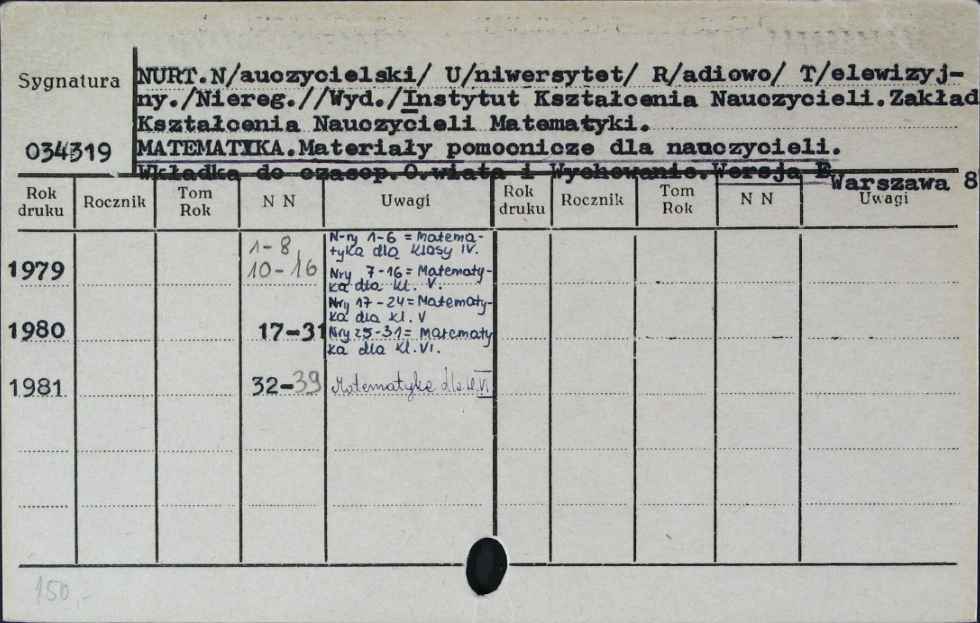 Sygnatura
034319
NURT.N/auczycielski/ U/niwersytet/ R/adiowo/ T/elewizyj-
ny./Niereg.//Wyd./Instytut Kształcenia Nauczycieli.Zakład
Kształcenia Nauczycieli Matematyki.
MATEMATYKA.Materiały pomocnicze dla nauczycieli.
Wkładka do czasop.O.wiata i Wychowanie.Wersja B
Warszawa 8
Rok druku Rocznik Tom Rok N N Uwagi Rok druku Rocznik Tom Rok N N Uwagi
1979 1-8 10-16 N-ry 1-6 = Matema-
tyka dla klasy IV.
Nry 7-16= Matematy-
ka dla kl. V.
1980 17-31 Nry 17-24= Matematy-
ka dla kl. V
Nry 25-31= Matematy
ka dla kl. VI.
1981 32-39 Matematyka dla kl. VI
150,-